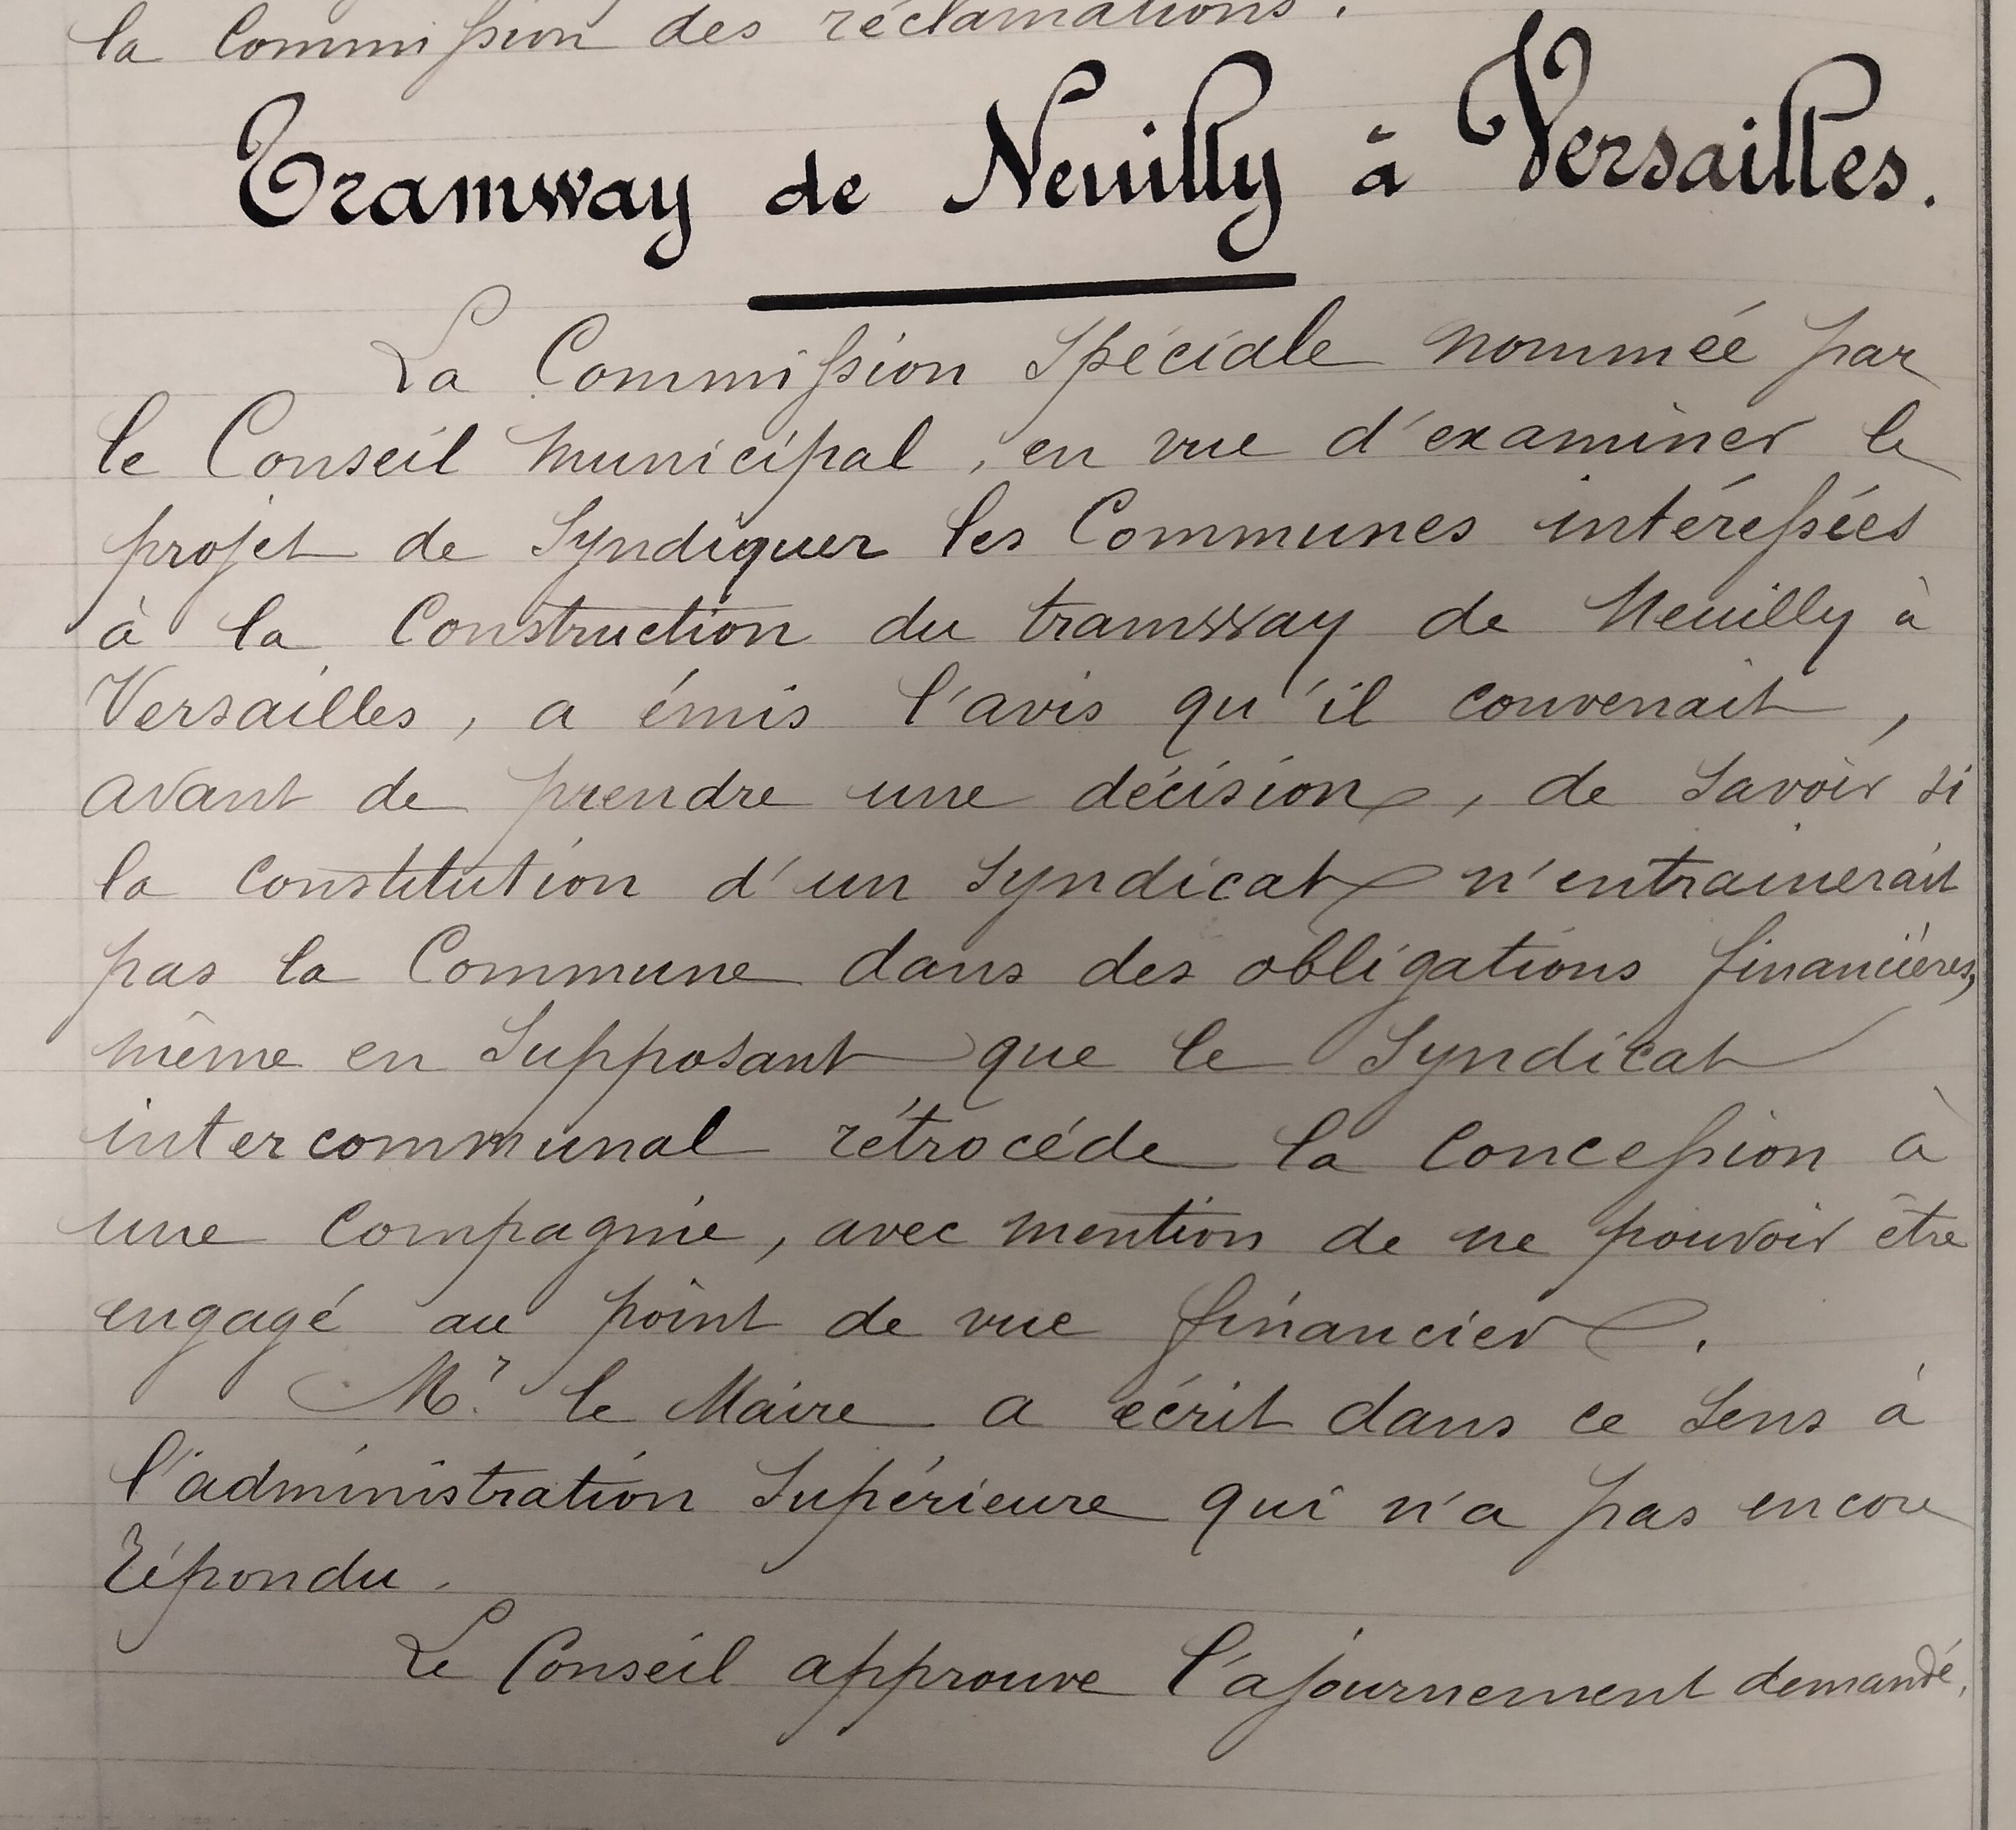 la Commission des réclamations.
Tramway de Neuilly à Versailles.
La Commission Spéciale nommée par
le Conseil Municipal, en vue d'examiner le
projet de Syndiquer les Communes intéressées
à la Construction du tramway de Neuilly à
Versailles, a émis l'avis qu'il convenait,
avant de prendre une décision, de savoir si
la Constitution d'un Syndicat n'entrainerait
pas la Commune dans des obligations financières,
même en Supposant que le Syndicat
intercommunal rétrocéde la Concession à
une Compagnie, avec mention de ne pouvoir être
engagé au point de vue financier.
Mr. le Maire a écrit dans ce Sens à
l'administration Supérieure qui n'a pas encore
répondu.
Le Conseil approuve l'ajournement demandé.